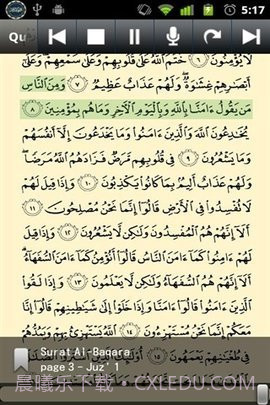 5:17
Qu
لَا يُؤْمِنُونَ ٦ خَتَمَ اللَّهُ عَلَىٰ قُلُوبِهِمْ وَعَلَىٰ سَمْعِهِمْ وَعَلَىٰ
أَبْصَٰرِهِمْ غِشَٰوَةٌ وَلَهُمْ عَذَابٌ عَظِيمٌ ٧ وَمِنَ النَّاسِ
مَن يَقُولُ ءَامَنَّا بِاللَّهِ وَبِالْيَوْمِ الْءَاخِرِ وَمَا هُم بِمُؤْمِنِينَ ٨
يُخَٰدِعُونَ اللَّهَ وَالَّذِينَ ءَامَنُوا وَمَا يَخْدَعُونَ إِلَّا أَنفُسَهُمْ
وَمَا يَشْعُرُونَ ٩ فِي قُلُوبِهِم مَّرَضٌ فَزَادَهُمُ اللَّهُ مَرَضًا
وَلَهُمْ عَذَابٌ أَلِيمٌ بِمَا كَانُوا يَكْذِبُونَ ١٠ وَإِذَا قِيلَ لَهُمْ
لَا تُفْسِدُوا فِي الْأَرْضِ قَالُوا إِنَّمَا نَحْنُ مُصْلِحُونَ ١١
أَلَا إِنَّهُمْ هُمُ الْمُفْسِدُونَ وَلَٰكِن لَّا يَشْعُرُونَ ١٢ وَإِذَا قِيلَ
لَهُمْ ءَامِنُوا كَمَا ءَامَنَ النَّاسُ قَالُوا أَنُؤْمِنُ كَمَا ءَامَنَ السُّفَهَاءُ
أَلَا إِنَّهُمْ هُمُ السُّفَهَاءُ وَلَٰكِن لَّا يَعْلَمُونَ ١٣ وَإِذَا لَقُوا
الَّذِينَ ءَامَنُوا قَالُوا ءَامَنَّا وَإِذَا خَلَوْا إِلَىٰ شَيَٰطِينِهِمْ قَالُوا إِنَّا
مَعَكُمْ إِنَّمَا نَحْنُ مُسْتَهْزِءُونَ ١٤ اللَّهُ يَسْتَهْزِئُ بِهِمْ وَيَمُدُّهُمْ
فِي طُغْيَٰنِهِمْ يَعْمَهُونَ ١٥
Surat Al-Baqara
page 3 - Juz' 1
晨曦乐下载 CXLEDU.COM